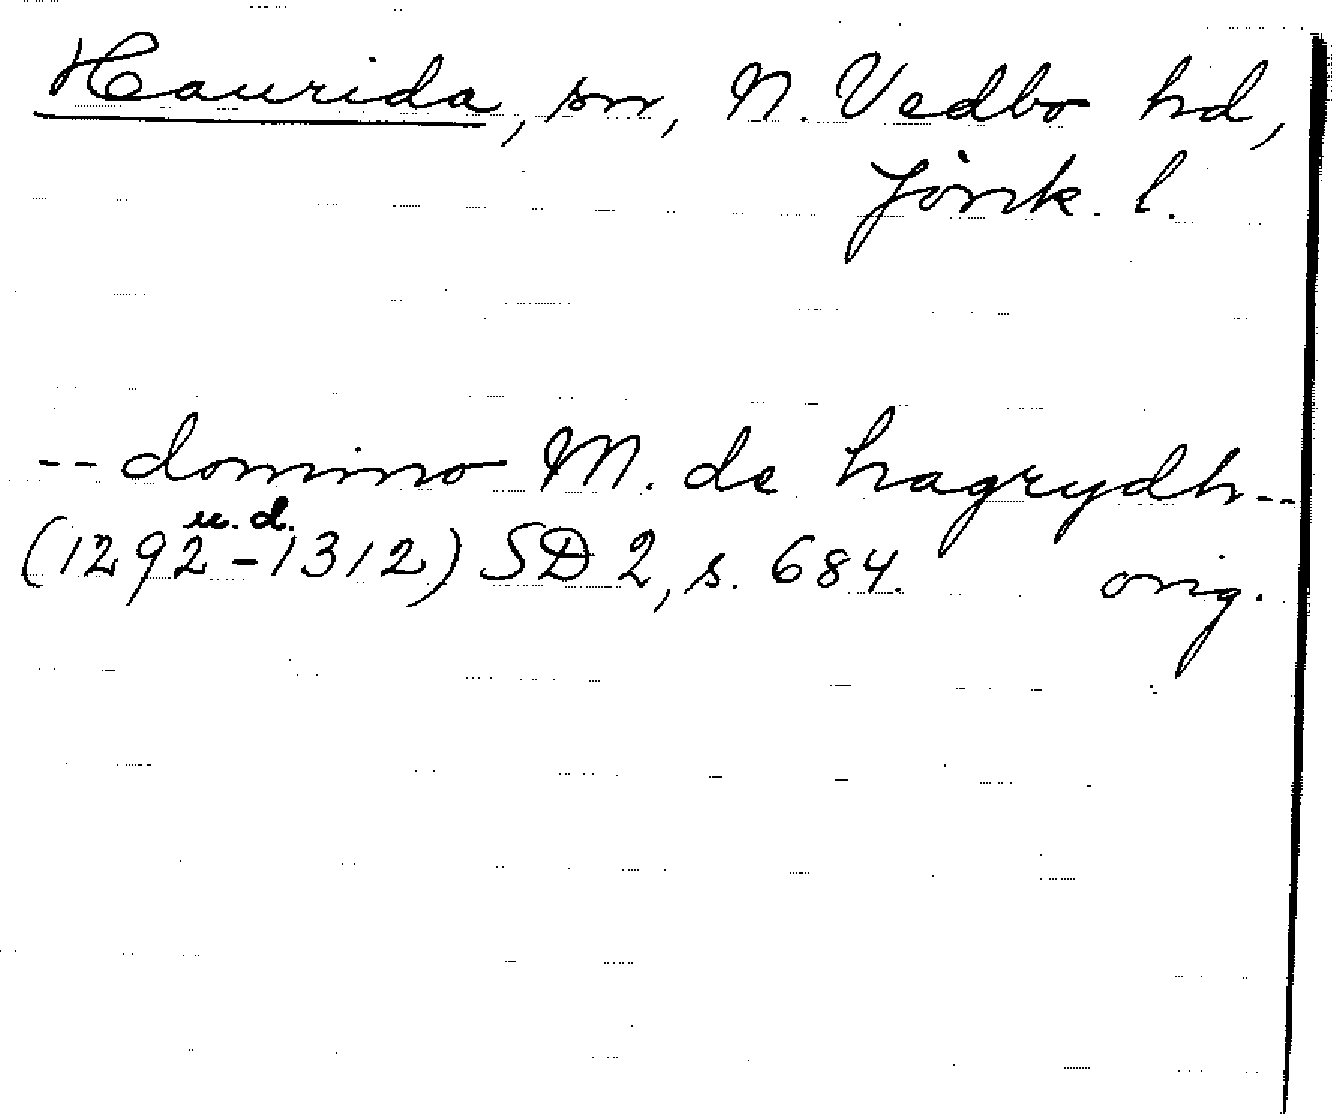 Haurida, sn, N. Vedbo hd,
Jönk. l.
-- domino M. de hagrydh --
u. d.
(1292-1312) SD 2, s. 684. orig.